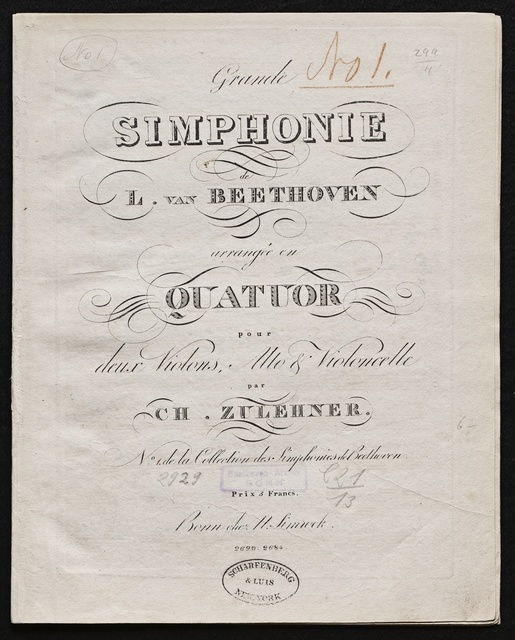 No 1
No 1.
299
4
Grande
SIMPHONIE
de
L. VAN BEETHOVEN
arrangée en
QUATUOR
pour
deux Violons, Alto & Violoncelle
par
CH. ZULEHNER.
No 1, de la Collection des Simphonies de Beethoven
2929
BONN
C21
13
6-
Prix 5 Francs.
Bonn chez N. Simrock.
SCHARFENBERG
& LUIS
NEW-YORK